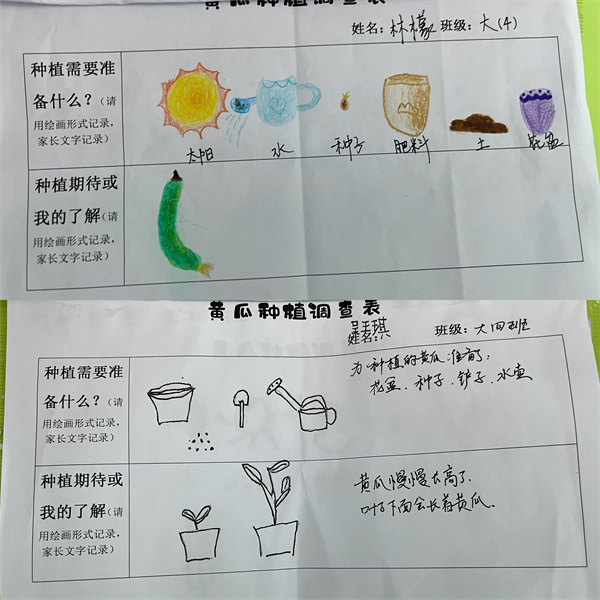 黄瓜种植调查表
姓名：林檬 班级：大(4)
种植需要准
备什么？（请
用绘画形式记录，
家长文字记录）
太阳 水 种子 肥料 土 花盆
种植期待或
我的了解（请
用绘画形式记录，
家长文字记录）
黄瓜种植调查表
姓名：吴玉琪 班级：大四班
种植需要准
备什么？（请
用绘画形式记录，
家长文字记录）
为种植的黄瓜准备了：
花盆、种子、铲子、水壶
种植期待或
我的了解（请
用绘画形式记录，
家长文字记录）
黄瓜慢慢长高了，
叶子下面会长着黄瓜。